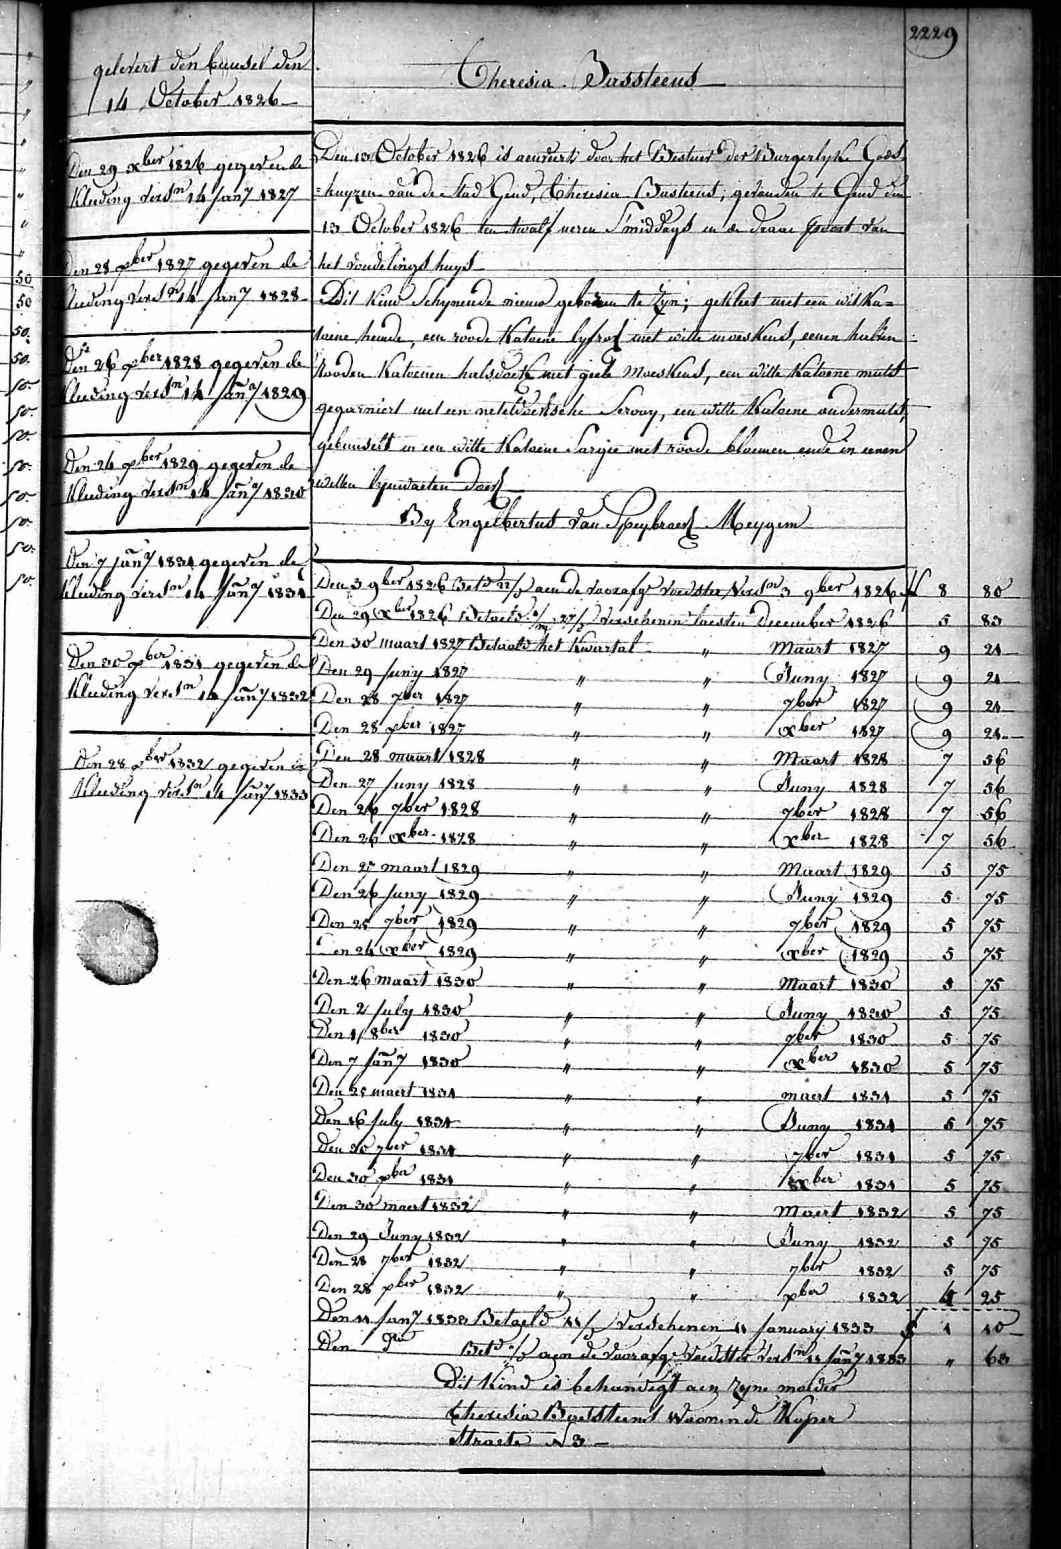 2229
gelevert den bunsel den
14 October 1826
Theresia Bassteens
Den 29 xber 1826 gegeven de
Kleeding versn 14 Jany 1827
Den 28 xber 1827 gegeven de
kleeding versn 14 Jany 1828
Den 26 xber 1828 gegeven de
kleeding versn 14 Jany 1829
Den 24 xber 1829 gegeven de
Kleeding versn 14 Jany 1830
Den 7 Jany 1831 gegeven de
kleeding versn 14 Jany 1831
Den 30 xber 1831 gegeven de
Kleeding versn 14 Jany 1832
Den 28 xber 1832 gegeven de
Kleeding versn 14 Jany 1833
Den 13 October 1826 is aenveert door het Bestuer der Burgerlyke Gods
=huyzen van de Stad Gend, Theresia Basteens, gevonden te Gend den
13 October 1826 ten twalf ueren S'middags in de draae van
het vondelings huys
Dit Kind Schynende nieuw geboren te Zyn; gekleet met een wit Ka=
toene hemde, een roode Katoene lyfrok met witte moeskens, eenen halven
rooden Katoenen halsdoek met geele Moeskens, een witte Katoene muts
gegarniert met een neteldoeksche, een witte Katoene ondermuts,
gebunselt in een witte Katoene Sargie met roode bloemen ende in eenen
wollen doek
By Engelbertus van Speybroek Meygem
Den 3 9ber 1826 Betd aen de voorafge voedster Versn 3 9ber 1826 f 8 80
Den 29 xber 1826 Betaeld verschenen laesten December 1826 5 83
Den 30 maart 1827 Betaald het Kwartal " Maart 1827 9 21
Den 29 Juny 1827 " " Juny 1827 9 21
Den 28 7ber 1827 " " 7ber 1827 9 21
Den 28 xber 1827 " " xber 1827 9 21
Den 28 maart 1828 " " Maart 1828 7 56
Den 27 Juny 1828 " " Juny 1828 7 56
Den 26 7ber 1828 " " 7ber 1828 7 56
Den 26 xber 1828 " " xber 1828 7 56
Den 27 maart 1829 " " Maart 1829 5 75
Den 26 Juny 1829 " " Juny 1829 5 75
Den 25 7ber 1829 " " 7ber 1829 5 75
Den 24 xber 1829 " " xber 1829 5 75
Den 26 maart 1830 " " Maart 1830 5 75
Den 2 July 1830 " " Juny 1830 5 75
Den 1 8ber 1830 " " 7ber 1830 5 75
Den 7 Jany 1830 " " xber 1830 5 75
Den 25 maert 1831 " " maert 1831 5 75
Den 16 July 1831 " " Juny 1831 5 75
Den 30 7ber 1831 " " 7ber 1831 5 75
Den 30 xber 1831 " " xber 1831 5 75
Den 30 maert 1832 " " Maert 1832 5 75
Den 29 Juny 1832 " " Juny 1832 5 75
Den 28 7ber 1832 " " 7ber 1832 5 75
Den 28 xber 1832 " " xber 1832 4 25
Den 11 Jany 1833 Betaeld verschenen 11 January 1833 f 1 10
Den do Betd aen de voorafge voedster versn 11 Jany 1833 " 63
Dit Kind is behandigt aen zyne moeder
Theresia Bassteens Woonende Koper
Straete N 3